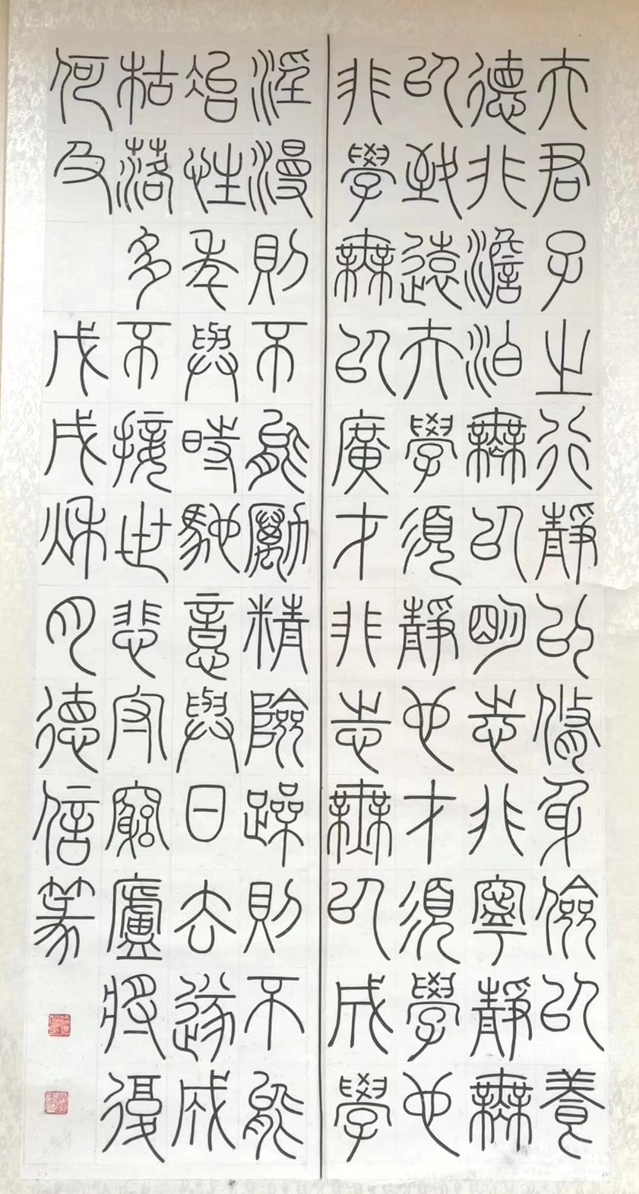 夫君子之行靜以修身儉以養
德非澹泊無以明志非寧靜無
以致遠夫學須靜也才須學也
非學無以廣才非志無以成學
淫漫則不能勵精險躁則不能
冶性年與時馳意與日去遂成
枯落多不接世悲守窮廬將復
何及 戊戌秋月德信篆